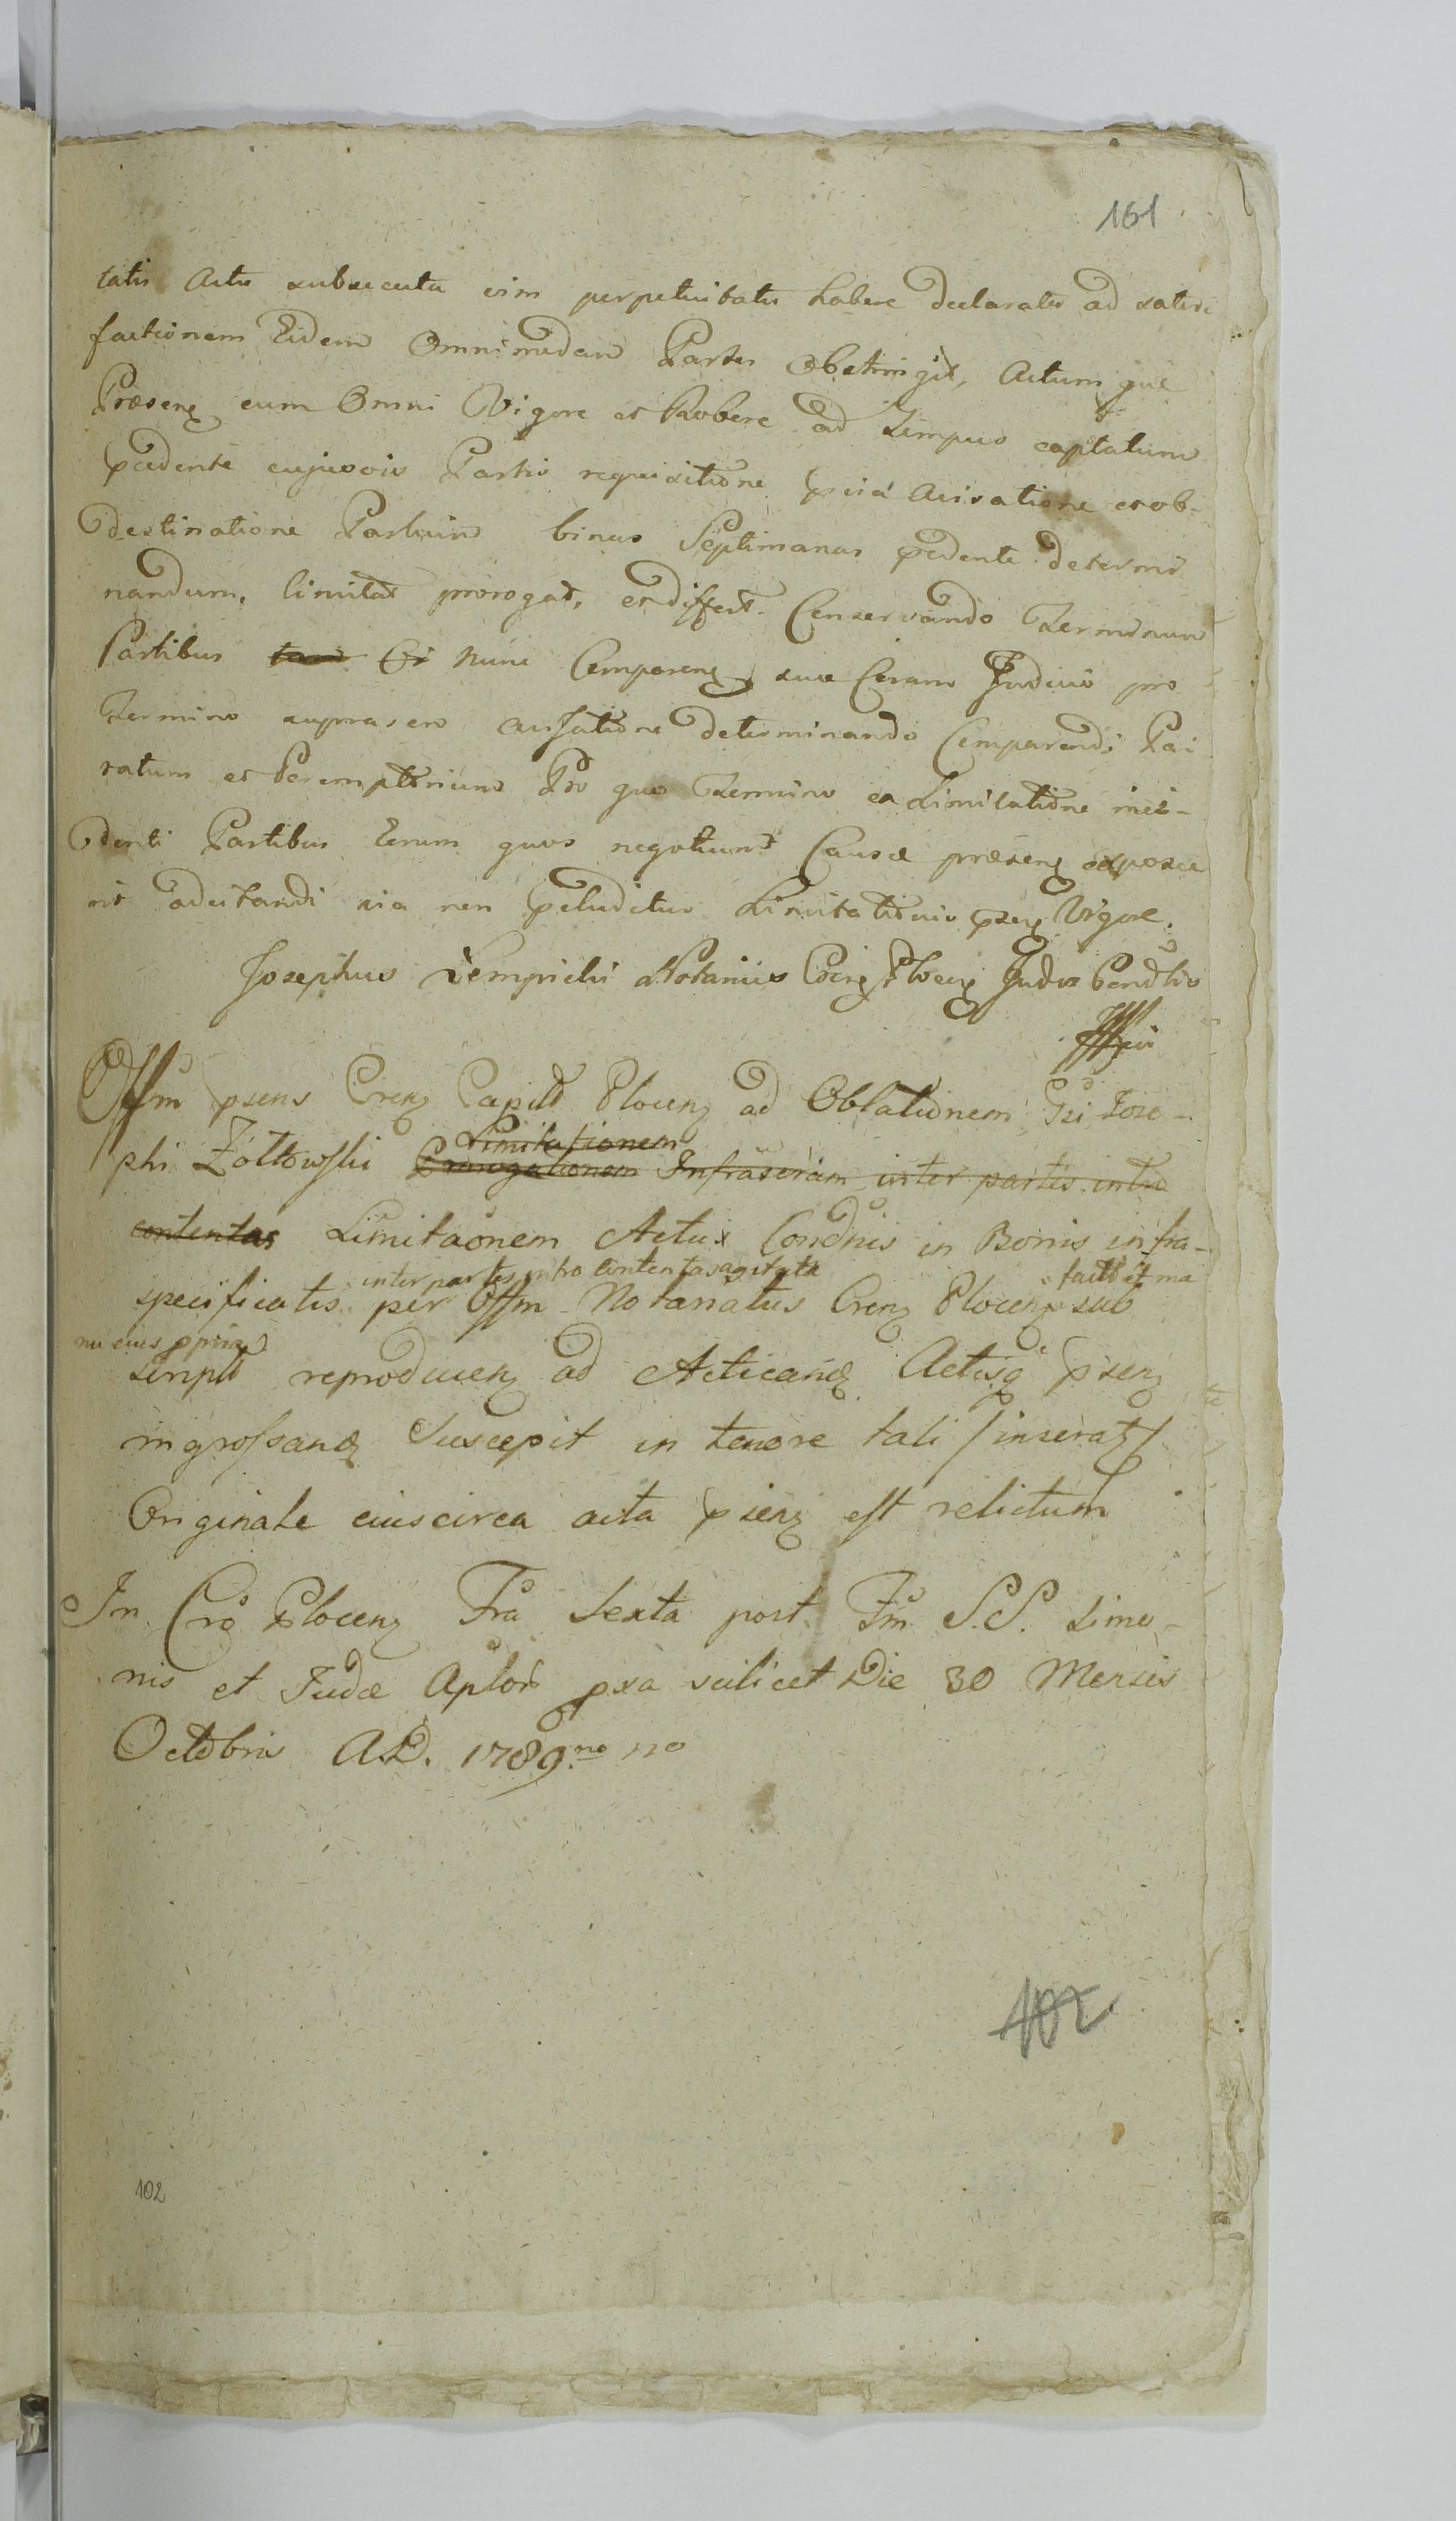 161
tatis Actu subsecuta vim perpetuitatis habere declaratis ad satis
factionem Eidem Omnimodam Partes obstringit, Actum que
Præsenς cum Omni Vigore et Robore ad Tempus captatum
pcedente cujusvis Partis requisitione pviâ Avisatione et ob-
destinatione Partium binas Septimanas pcedente determi
nandum, limitat prorogat, et differt. Conservando Terminum
Partibus nunc Comparenς suae Coram Judicio pro
Termino suprascro avisatione determinando Comparendi Pa-
ratum et Peremptorium Pro quo Termino ex Limitatione inci-
denti Partibus Eorum quos negotium Causæ præsenς exposce
rit adcitandi via non pcludetur Limitationis psenς Vigore.
Josephus Łempicki Notarius Crenς Plocenς Judex
Offm psens Crenς Capitle Plocenς ad Oblationem Gsi Jose-
phi Zółtowski
Limitationem
Prorogationem Infrascram inter partes intro
contentas Limitaonem Actus Condnis in Bonis infra-
inter partes intro contentas agitata
specificatis per Offm Notariatus Crenς Plocenς sub
facti et ma
nu eius ppria
script reproducenς ad Acticanđ Actisq psenς
ingrossanđ Suscepit in tenore tali /inseratς/
Originale eius circa acta psenς est relictum
In Cro Plocenς Fra Sexta post Fm S.S. Simo-
nis et Judæ Aplor pxa scilicet Die 30 Mensis
Octobris A.D. 1789.no no
102
102